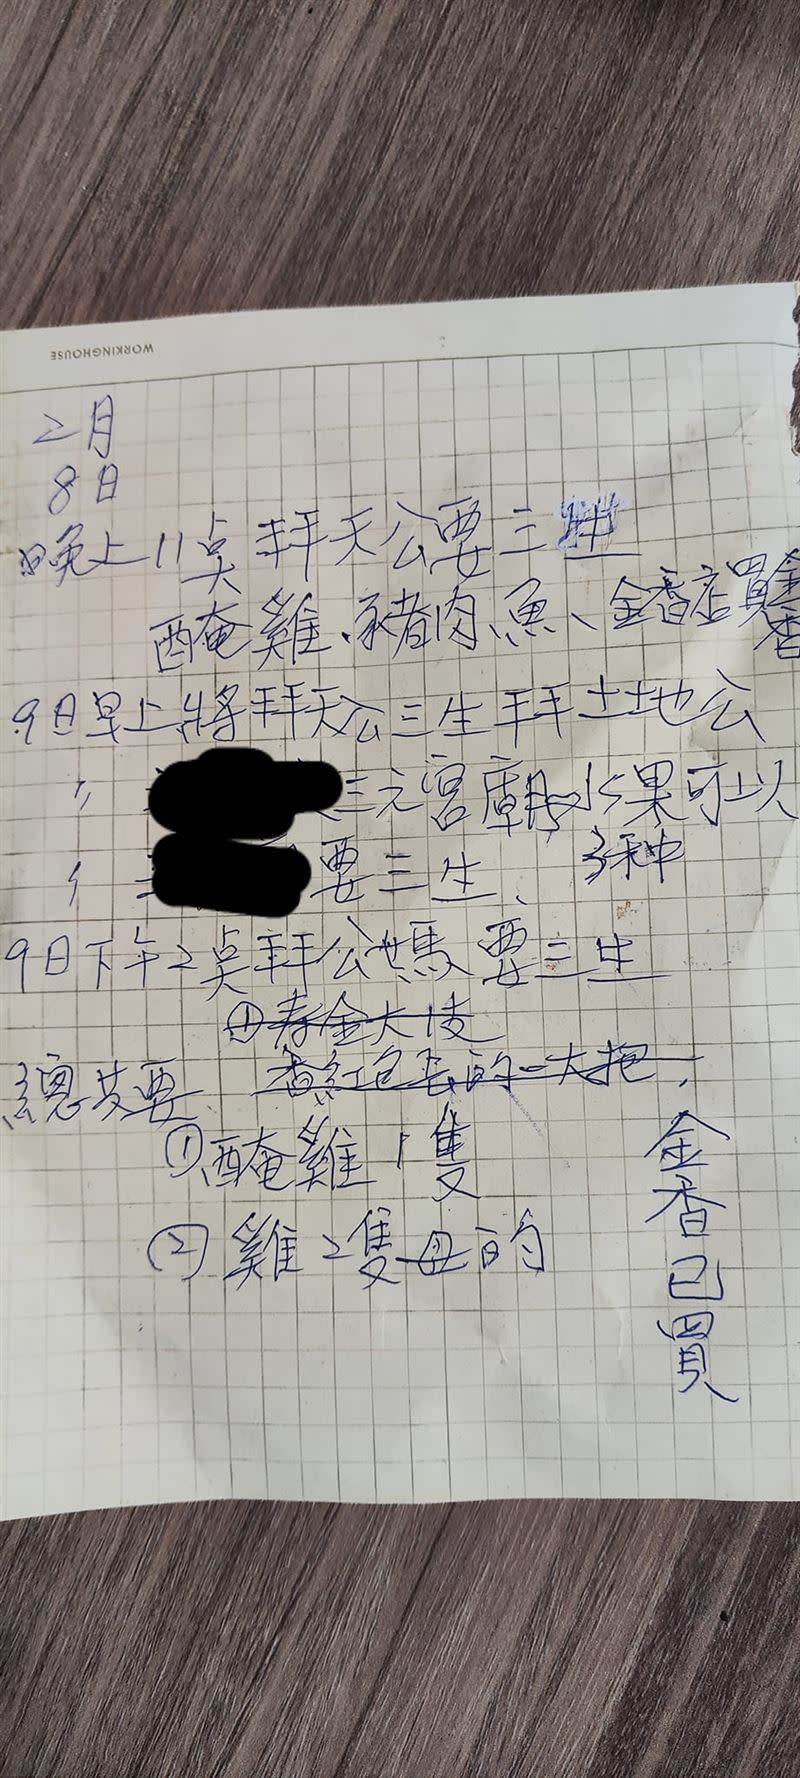 WORKINGHOUSE
2月
8日
晚上11点拜天公要三牲
醃雞、豬肉、魚、金香店買金香
9日早上將拜天公三生拜土地公
〃 三元宮廟水果可以
3种
〃 要三生、
9日下午2点拜公媽要三生
①寿金大
總共要 香紅色長的一大把,
①醃雞1隻
②雞2隻母的
金香已買